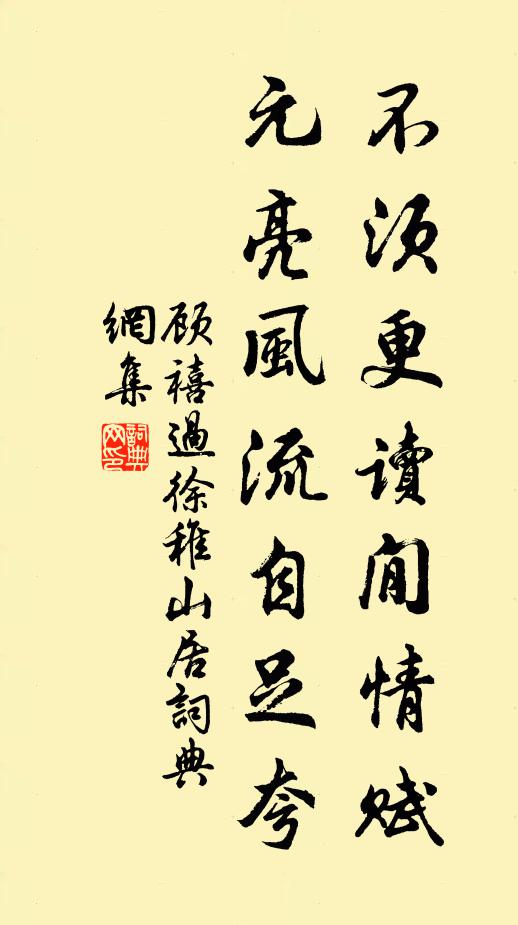 不須更讀閒情賦
元亮風流自足夸
顧禧過徐稚山居詞典
網集
詞典
網印